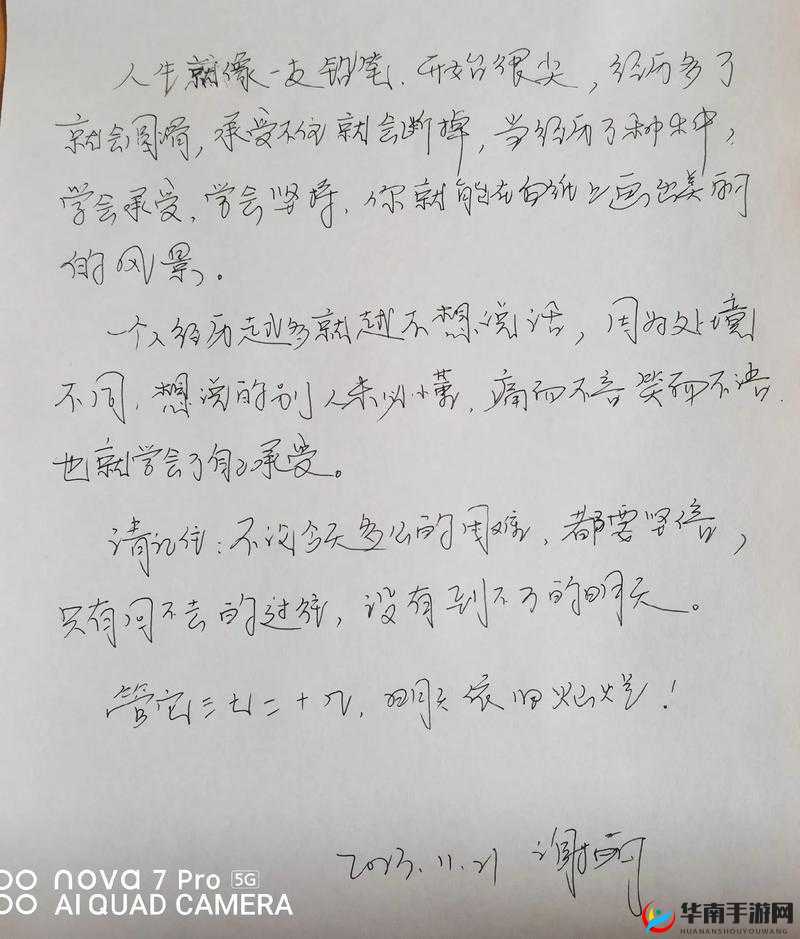 人生就像一支铅笔、开始很尖，经历多了
就会圆滑，承受不住就会断掉，当经历了种种，
学会承受、学会坚持、你就能在白纸上画出美丽
的风景。
一个人经历越多就越不想说话，因为处境
不同，想说的别人未必懂，痛而不言笑而不语，
也就学会了自己承受。
请记住：不论今天多么的困难，都要坚信，
只有回不去的过往，没有到不了的明天。
管它三七二十几，明天依旧灿烂！
2023.11.21 谢丽
nova 7 Pro 5G
AI QUAD CAMERA
华南手游网
HUANANSHOUYOUWANG